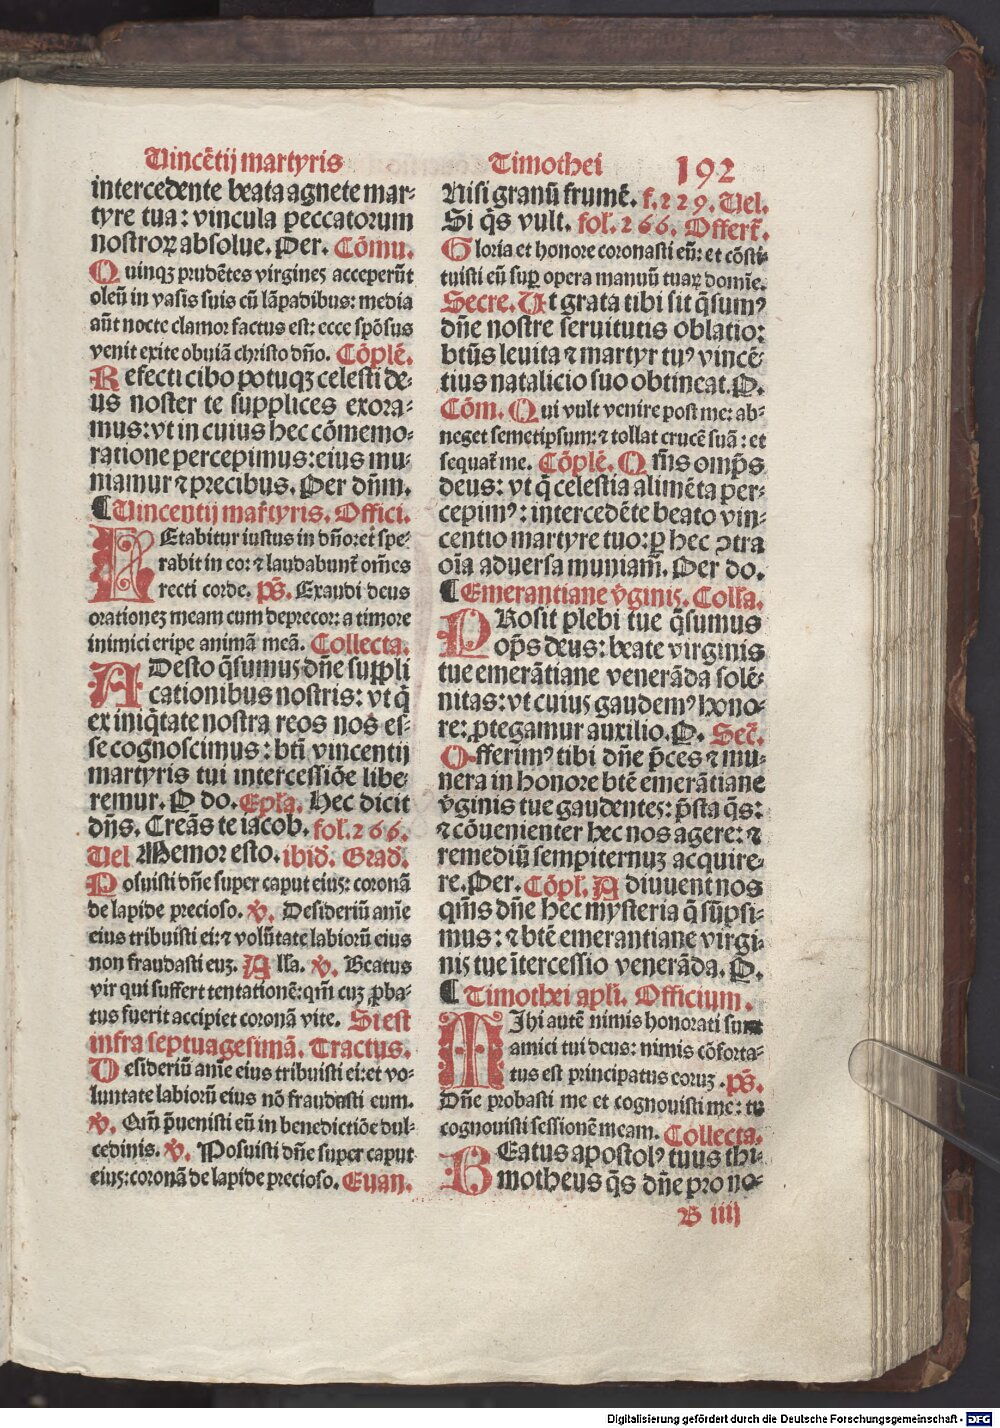 Vincẽtij martyris
Timothei 192
intercedente beata agnete mar⸗
tyre tua: vincula peccatorum
nostroꝝ absolue. Per. Cõmu.
Quinqꝫ prudẽtes virgines acceperũt
oleũ in vasis suis cũ lãpadibus: media
aũt nocte clamor factus est: ecce spõsus
venit exite obuiã christo dño. Cõplẽ.
Refecti cibo potuqꝫ celesti de⸗
us noster te supplices exora⸗
mus: vt in cuius hec cõmemo⸗
ratione percepimus: eius mu⸗
niamur ⁊ precibus. Per dñm.
¶ Vincentij mar̃tyris. Offici.
LEtabitur iustus in dño: et spe⸗
rabit in eo: ⁊ laudabunt̃ om̃es
recti corde. ps̃. Exaudi deus
orationeꝫ meam cum deprecor: a timore
inimici eripe animã meã. Collecta.
ADesto q̃sumus dñe suppli
cationibus nostris: vt q̃
ex iniq̃tate nostra reos nos es⸗
se cognoscimus: bti̇̃ vincentij
martyris tui intercessiõe libe⸗
remur. P do. Ep̃la. Hec dicit
dñs. Creãs te iacob. fol. 266.
Vel Memor esto. ibid̃. Grad̃.
Posuisti dñe super caput eius: coronã
de lapide precioso. ṽ. Desideriũ anĩe
eius tribuisti ei: ⁊ volũtate labiorũ eius
non fraudasti euꝫ. Alla. ṽ. Beatus
vir qui suffert tentationẽ: qm̃ cuꝫ ꝓba⸗
tus fuerit accipiet coronã vite. Si est
infra septuagesimã. Tractus.
Desideriũ anĩe eius tribuisti ei: et vo⸗
luntate labiorũ eius nõ fraudasti eum.
ṽ. Qm̃ p̃uenisti eũ in benedictiõe dul⸗
cedinis. ṽ. Posuisti dñe super caput
eius: coronã de lapide precioso. Euan.
Nisi granũ frumẽ. f. 229. Vel.
Si q̃s vult. fol. 266. Offert̃.
Gloria et honore coronasti eũ: et cõsti⸗
tuisti eũ sup̱ opera manuũ tuaꝝ domĩe.
Secre. Vt grata tibi sit q̃sumꝰ
dñe nostre seruitutis oblatio:
btũs leuita ⁊ martyr tuꝰ vincẽ⸗
tius natalicio suo obtineat. P.
Cõm. Qui vult venire post me: ab⸗
neget semetipsum: ⁊ tollat crucẽ suã: et
sequat̃ me. Cõplẽ. Qm̃s omp̃s
deus: vt q̃ celestia alimẽta per⸗
cepimꝰ: intercedẽte beato vin⸗
centio martyre tuo: ꝑ hec ↄtra
oĩa aduersa muniam̃. Per do.
¶ Emerantiane ṽginis. Coll̃a.
PRosit plebi tue q̃sumus
op̃s deus: beate virginis
tue emerãtiane venerãda solẽ⸗
nitas: vt cuius gaudemꝰ hono⸗
re: ꝓtegamur auxilio. P. Sec̃.
Offerimꝰ tibi dñe p̃ces ⁊ mu⸗
nera in honore btẽ emerãtiane
ṽginis tue gaudentes: p̃sta q̃s:
⁊ cõuenienter hec nos agere: ⁊
remediũ sempiternuꝫ acquire⸗
re. Per. Cõpl̃. Adiuuent nos
qm̃s dñe hec mysteria q̃ sũpsi⸗
mus: ⁊ btẽ emerantiane virgi⸗
nis tue ĩtercessio venerãda. P.
¶ Timothei apli. Officium.
MIhi autẽ nimis honorati sunt
amici tui deus: nimis cõforta⸗
tus est principatus eoruꝫ. ps̃.
Dñe probasti me et cognouisti me: tu
cognouisti sessionẽ meam. Collecta.
BEatus apostolꝰ tuus thi⸗
motheus q̃s dñe pro no⸗
B iiij
Digitalisierung gefördert durch die Deutsche Forschungsgemeinschaft - DFG